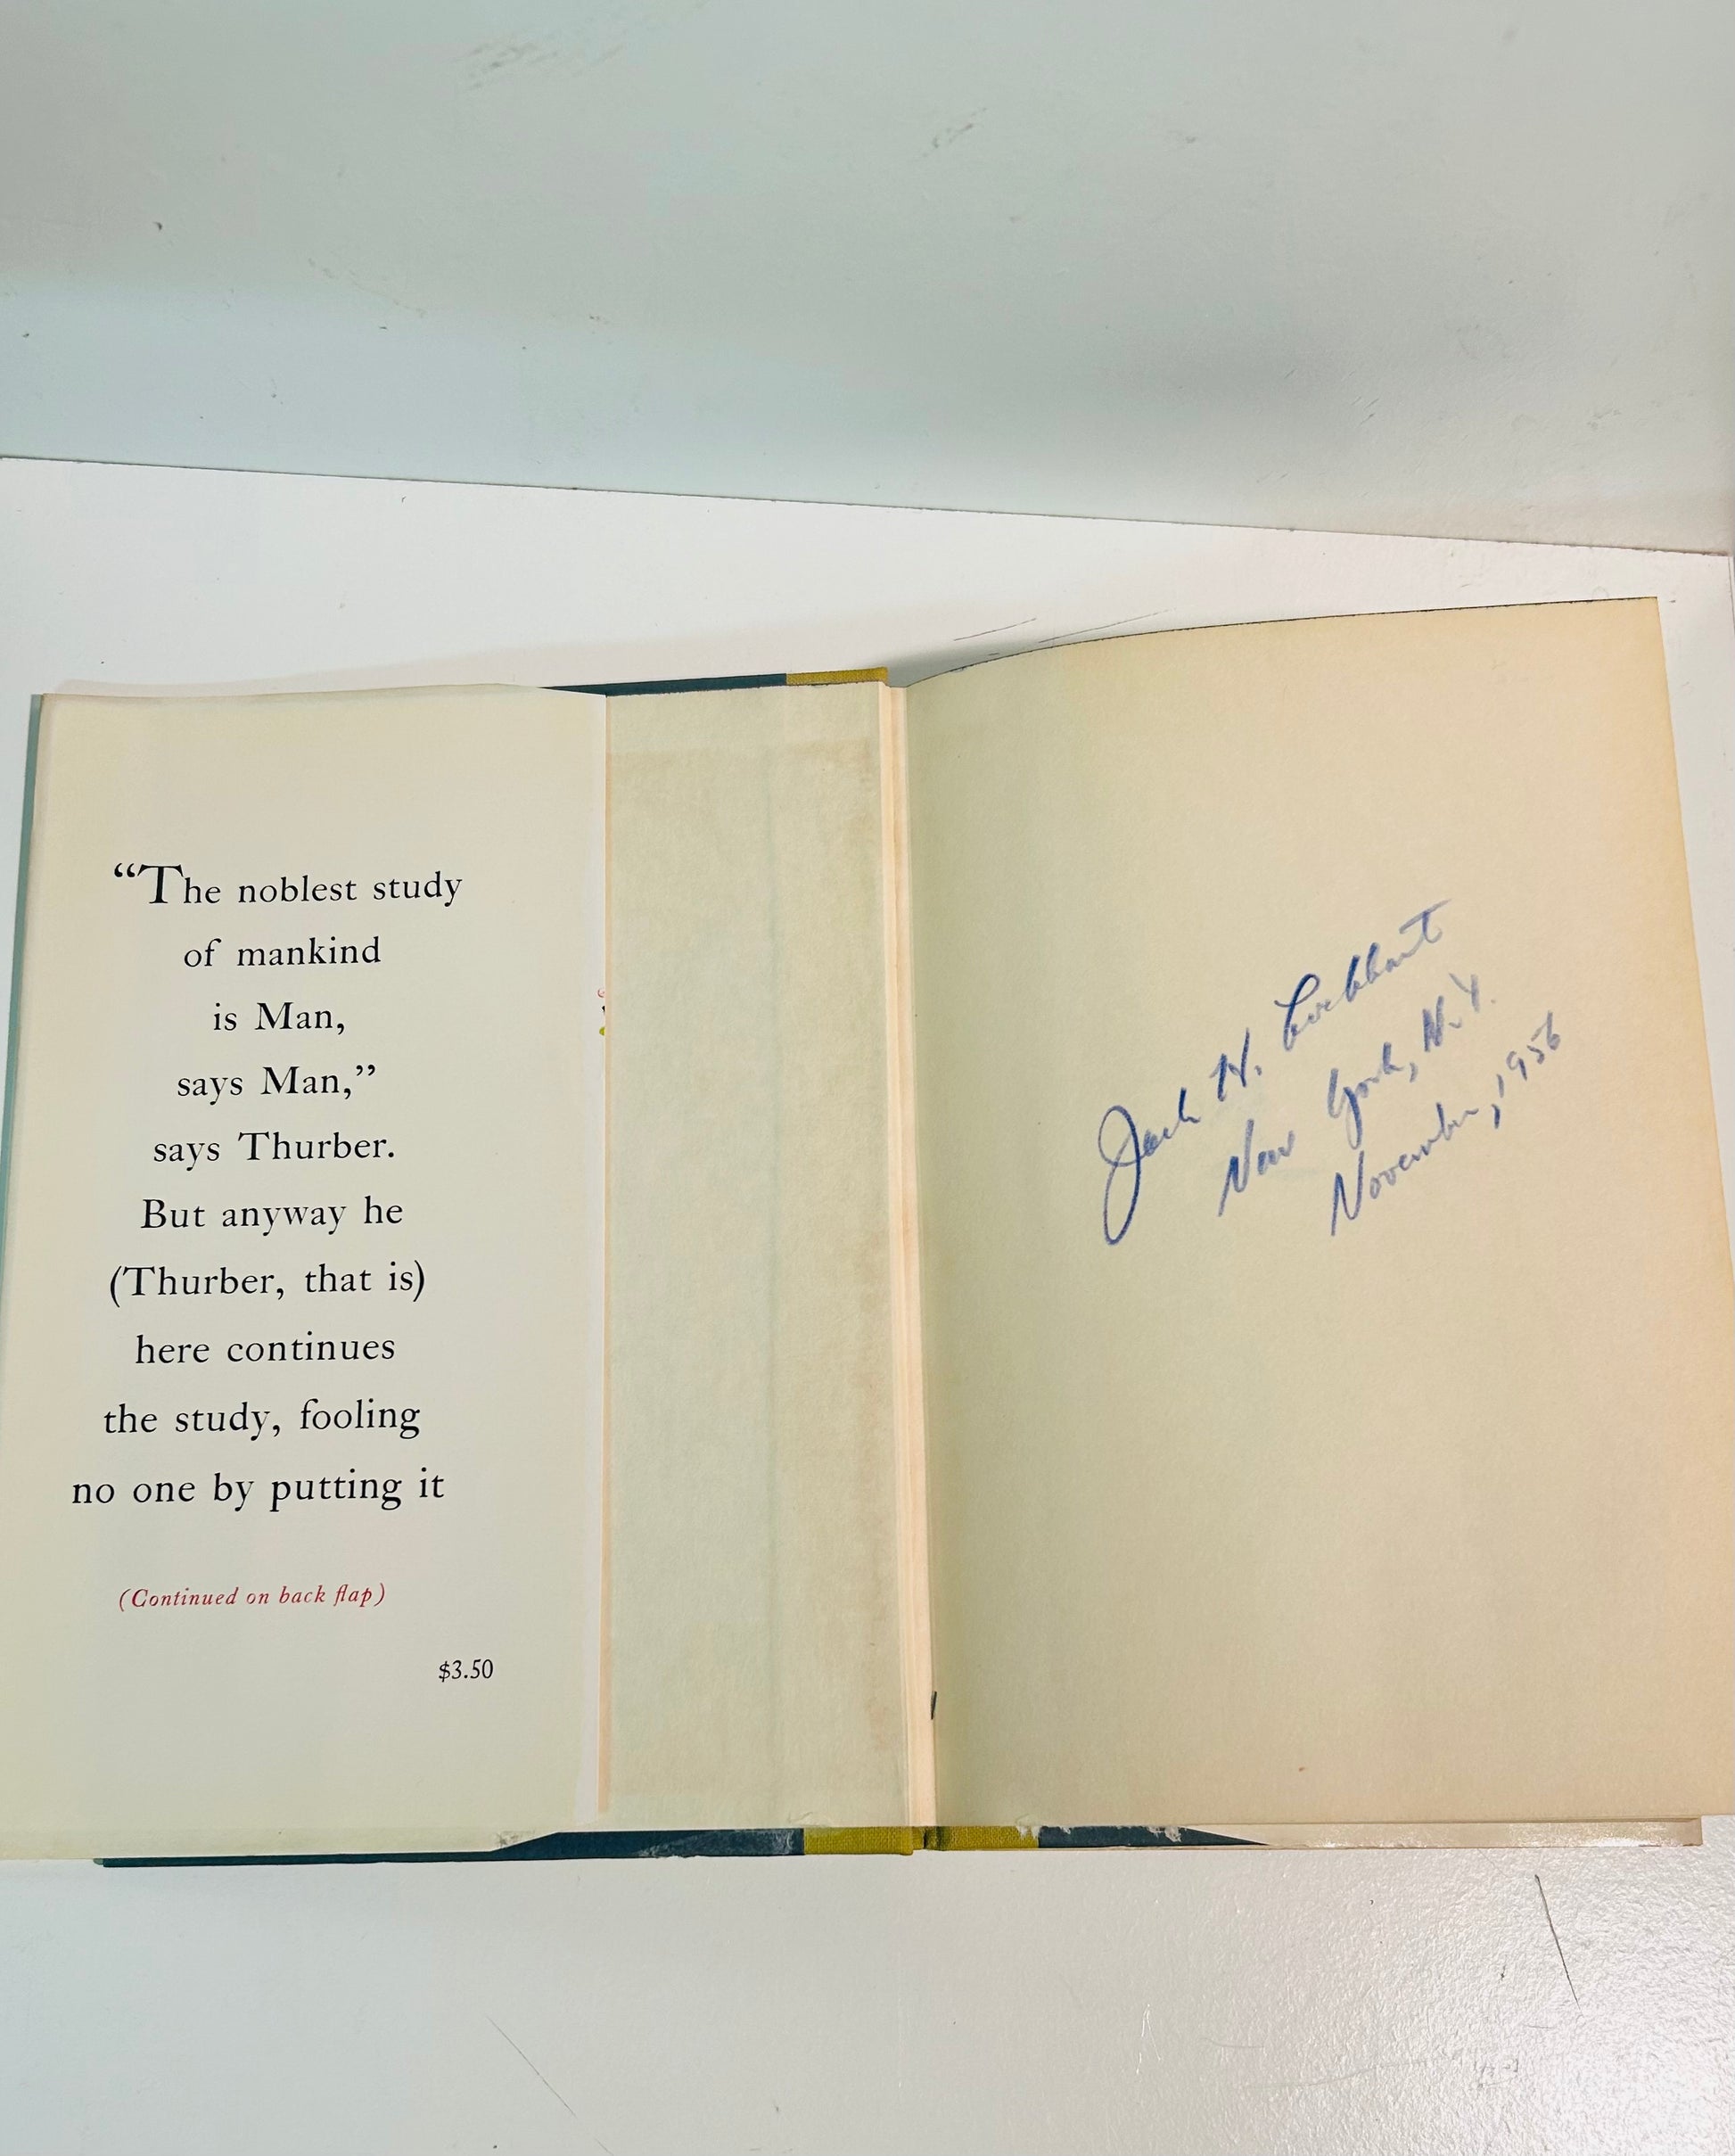 “The noblest study
of mankind
is Man,
says Man,”
says Thurber.
But anyway he
(Thurber, that is)
here continues
the study, fooling
no one by putting it
(Continued on back flap)
$3.50
Jack H. Lockhart
New York, N.Y.
November, 1956